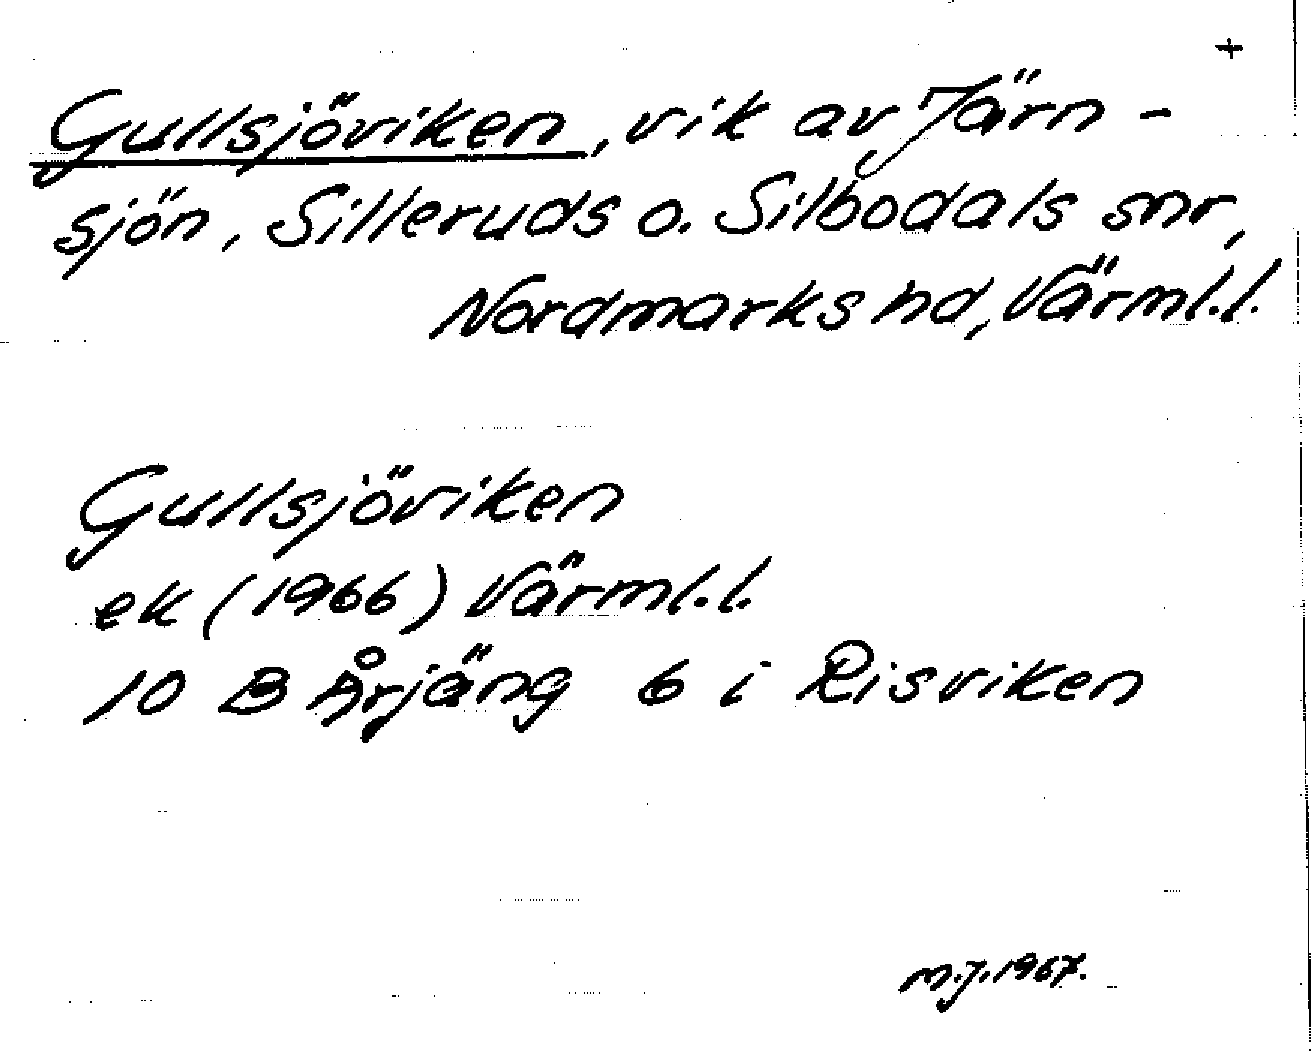 +
Gullsjöviken, vik av Järn-
sjön, Silleruds o. Silbodals snr,
Nordmarks hd, Värml.l.
Gullsjöviken
ek (1966) Värml.l.
10 B Årjäng 6 i Risviken
M.J. 1967.